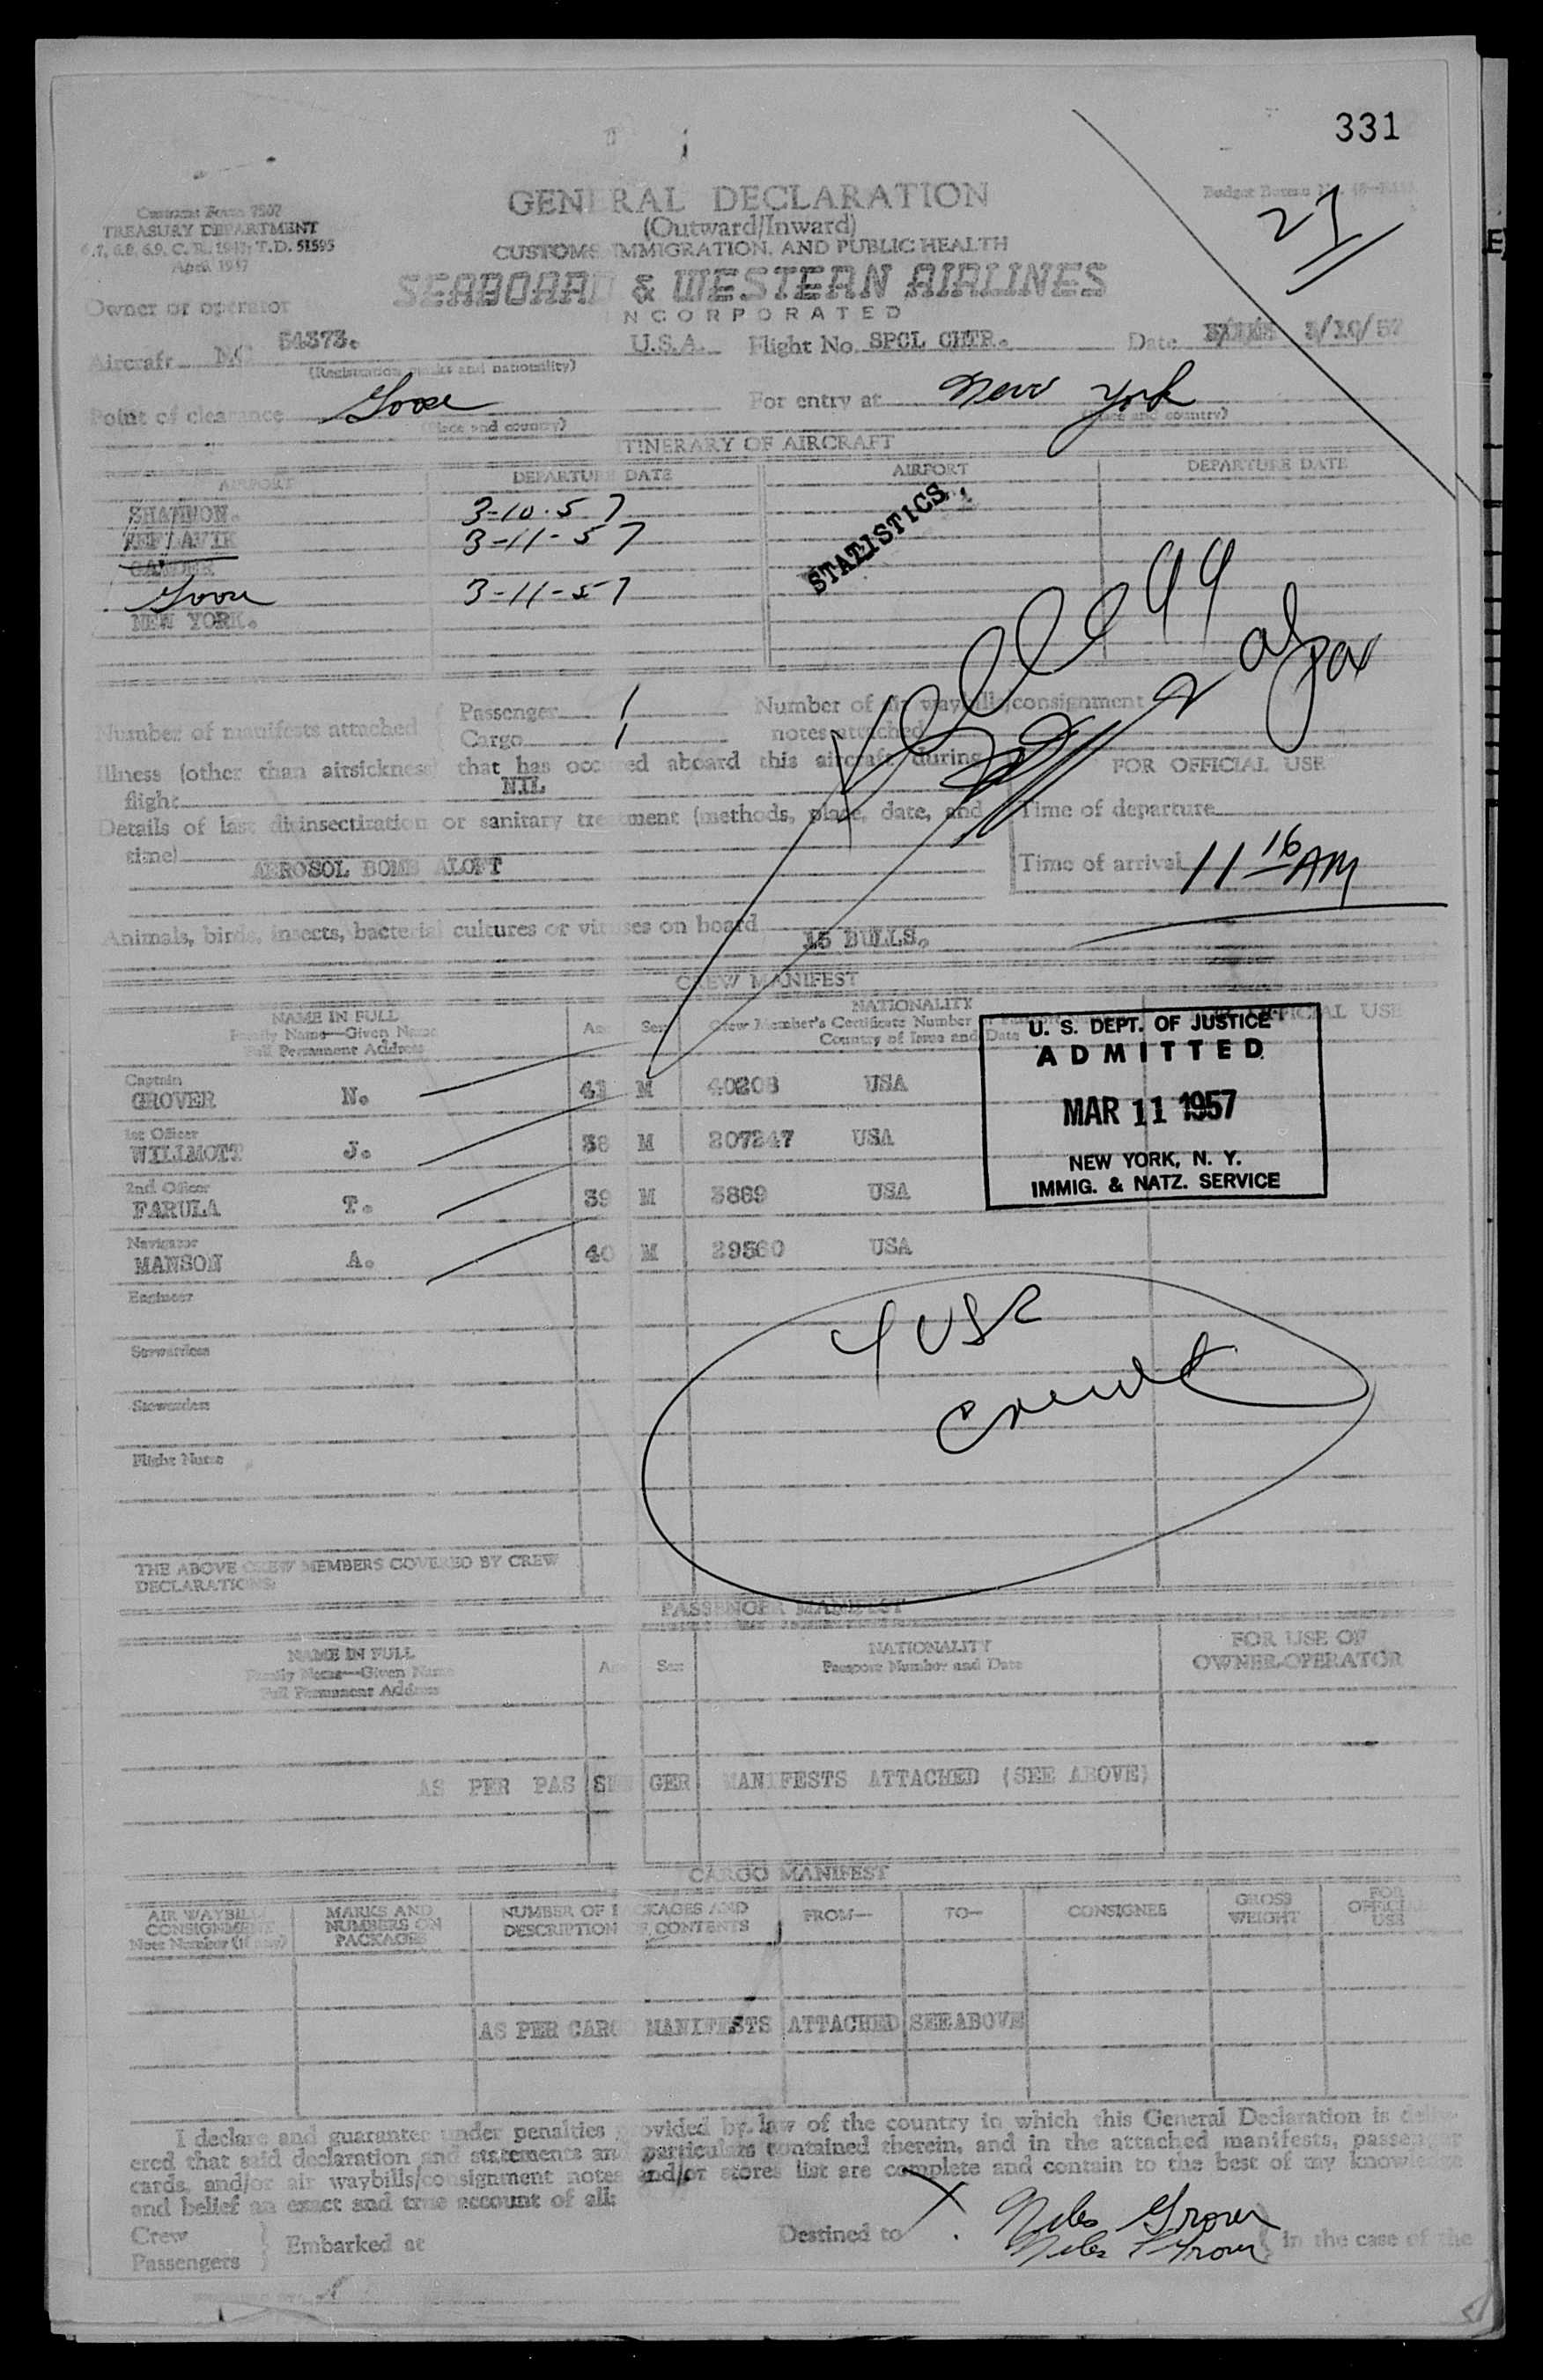 331
GENERAL DECLARATION
(Outward/Inward)
CUSTOMS, IMMIGRATION, AND PUBLIC HEALTH
Customs Form 7507
TREASURY DEPARTMENT
6.7, 6.8, 6.9, C. R. 1947; T.D. 51595
April 1947
Budget Bureau
SEABOARD & WESTERN AIRLINES
INCORPORATED
Owner or operator
Aircraft NC 54373. U.S.A. Flight No. SPCL CHTR. Date 3/10/57
(Registration marks and nationality)
Point of clearance Goose For entry at New York
(Place and country) (Place and country)
ITINERARY OF AIRCRAFT
AIRPORT DEPARTURE DATE AIRPORT DEPARTURE DATE
SHANNON. 3-10-57
KEFLAVIK 3-11-57
GANDER
Goose 3-11-57
NEW YORK.
STATISTICS
Number of manifests attached Passenger 1 Number of air waybills/consignment
Cargo 1 notes attached
Illness (other than airsickness) that has occurred aboard this aircraft during
flight NIL
FOR OFFICIAL USE
Details of last disinsectization or sanitary treatment (methods, place, date, and
time) AEROSOL BOMB ALOFT
Time of departure
Time of arrival 11 16 AM
Animals, birds, insects, bacterial cultures or viruses on board 15 BULLS.
CREW MANIFEST
NAME IN FULL
Family Name—Given Name
Full Permanent Address
Age Sex
NATIONALITY
Crew Member's Certificate Number or Passport
Country of Issue and Date
OFFICIAL USE
Captain
GROVER N. 41 M 40208 USA
1st Officer
WILLMOTT J. 38 M 207247 USA
2nd Officer
FARULA T. 39 M 3869 USA
Navigator
MANSON A. 40 M 29560 USA
Engineer
Stewardess
Stewardess
Flight Nurse
U. S. DEPT. OF JUSTICE
ADMITTED
MAR 11 1957
NEW YORK, N. Y.
IMMIG. & NATZ. SERVICE
4 USC
THE ABOVE CREW MEMBERS COVERED BY CREW
DECLARATIONS:
PASSENGER MANIFEST
NAME IN FULL
Family Name—Given Name
Full Permanent Address
Age Sex
NATIONALITY
Passport Number and Date
FOR USE OF
OWNER-OPERATOR
AS PER PASSENGER MANIFESTS ATTACHED (SEE ABOVE)
CARGO MANIFEST
AIR WAYBILL/
CONSIGNMENT
Note Number (if any)
MARKS AND
NUMBERS ON
PACKAGES
NUMBER OF PACKAGES AND
DESCRIPTION OF CONTENTS
FROM— TO— CONSIGNEE
GROSS
WEIGHT
FOR
OFFICIAL
USE
AS PER CARGO MANIFESTS ATTACHED SEE ABOVE
I declare and guarantee under penalties provided by law of the country in which this General Declaration is deliv-
ered that said declaration and statements and particulars contained therein, and in the attached manifests, passenger
cards, and/or air waybills/consignment notes and/or stores list are complete and contain to the best of my knowledge
and belief an exact and true account of all:
Crew
Passengers
Embarked at Destined to in the case of the
X. Niles Grover
Niles Grover